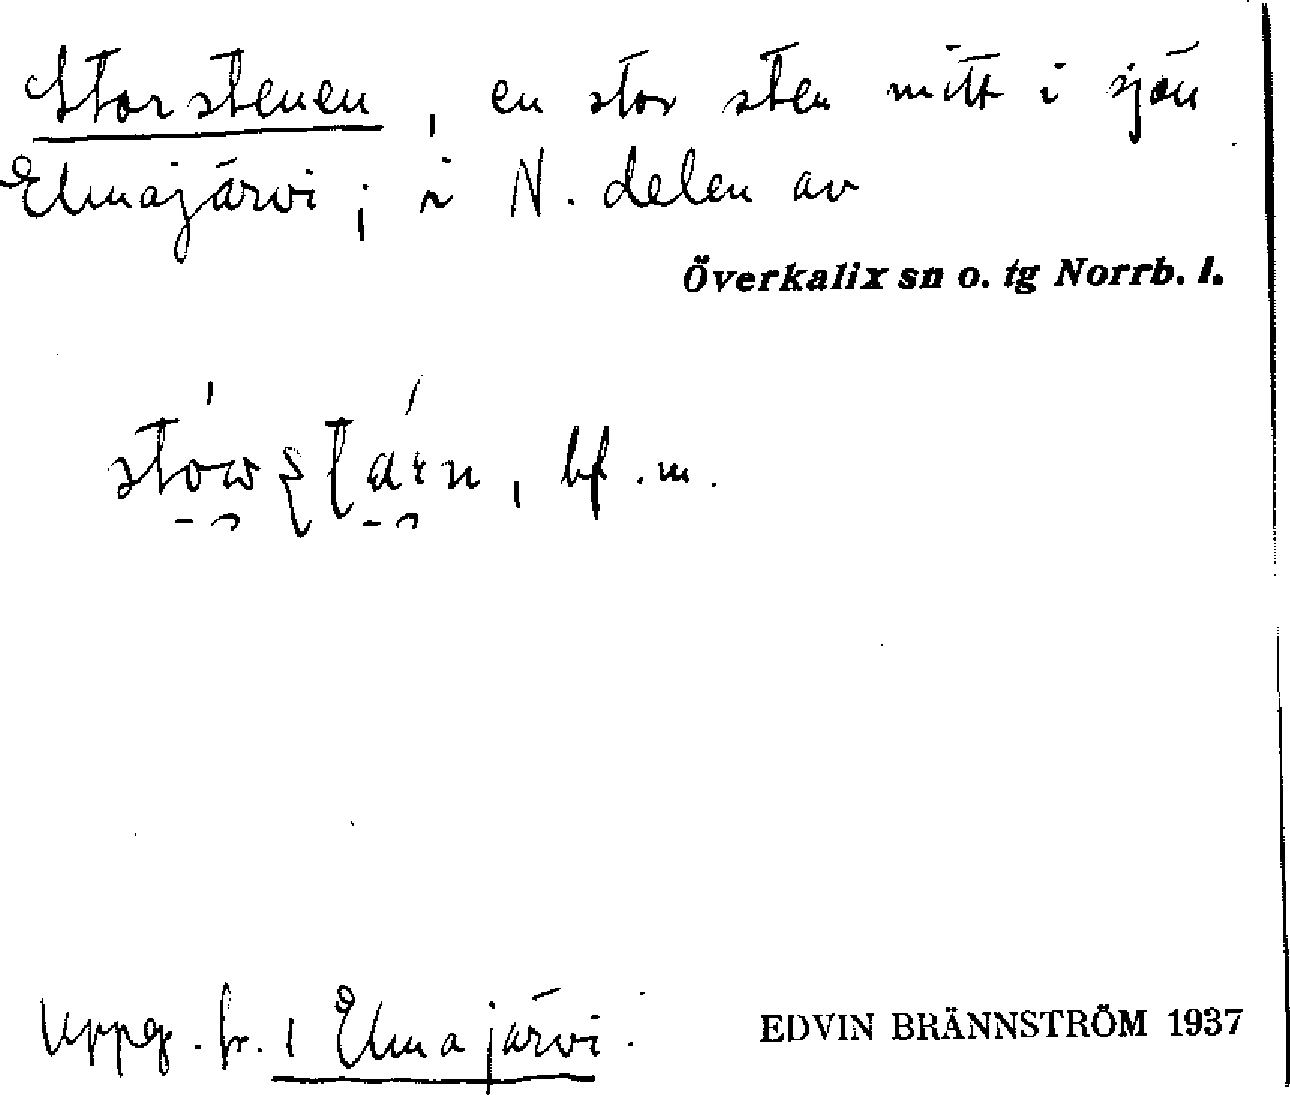 Storstenen, en stor sten mitt i sjön
Elmajärvi; i N. delen av
Överkalix sn o. tg Norrb. l.
bf. m.
Uppg. fr. 1 Elmajärvi.
EDVIN BRÄNNSTRÖM 1937